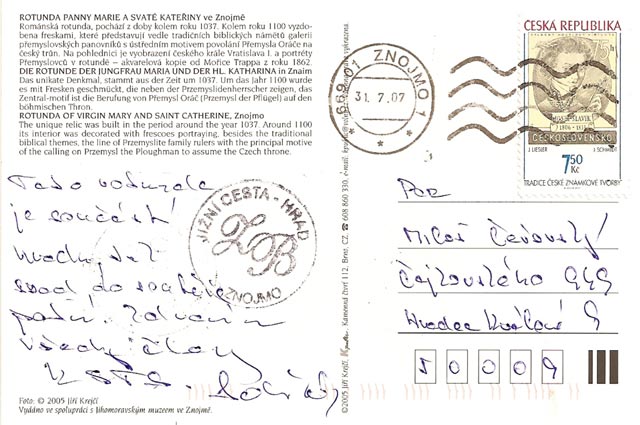 ROTUNDA PANNY MARIE A SVATÉ KATEŘINY ve Znojmě
Románská rotunda, pochází z doby kolem roku 1037. Kolem roku 1100 vyzdo-
bena freskami, které představují vedle tradičních biblických námětů galerii
přemyslovských panovníků s ústředním motivem povolání Přemysla Oráče na
český trůn. Na pohlednici je vyobrazení českého krále Vratislava I. a portréty
Přemyslovců v rotundě – akvarelová kopie od Mořice Trappa z roku 1862.
DIE ROTUNDE DER JUNGFRAU MARIA UND DER HL. KATHARINA in Znaim
Das unikate Denkmal, stammt aus der Zeit um 1037. Um das Jahr 1100 wurde
es mit Fresken geschmückt, die neben der Przemyslidenherrscher zeigen, das
Zentral-motiv ist die Berufung von Přemysl Oráč (Przemysl der Pflügel) auf den
böhmischen Thron.
ROTUNDA OF VIRGIN MARY AND SAINT CATHERINE, Znojmo
The unique relic was built in the period around the year 1037. Around 1100
its interior was decorated with frescoes portraying, besides the traditional
biblical themes, the line of Przemyslite family rulers with the principal motive
of the calling on Przemysl the Ploughman to assume the Czech throne.
Tato rotunda
je součástí
JIŽNÍ CESTA - HRAD
ZB
ZNOJMO
Foto: © 2005 Jiří Krejčí
Vydáno ve spolupráci s Jihomoravským muzeem ve Znojmě.
©2005 Jiří Krejčí. Kamenná čtvrť 112, Brno, CZ. ☎ 608 860 330
669 01 ZNOJMO 1
31.7.07
ČESKÁ REPUBLIKA
ČESKOSLOVENSKO
J. LIESLER
J. SCHMIDT
7,50
Kč
TRADICE ČESKÉ ZNÁMKOVÉ TVORBY
Miloš
Čajkovského 949
Hradec Králové 9
50009